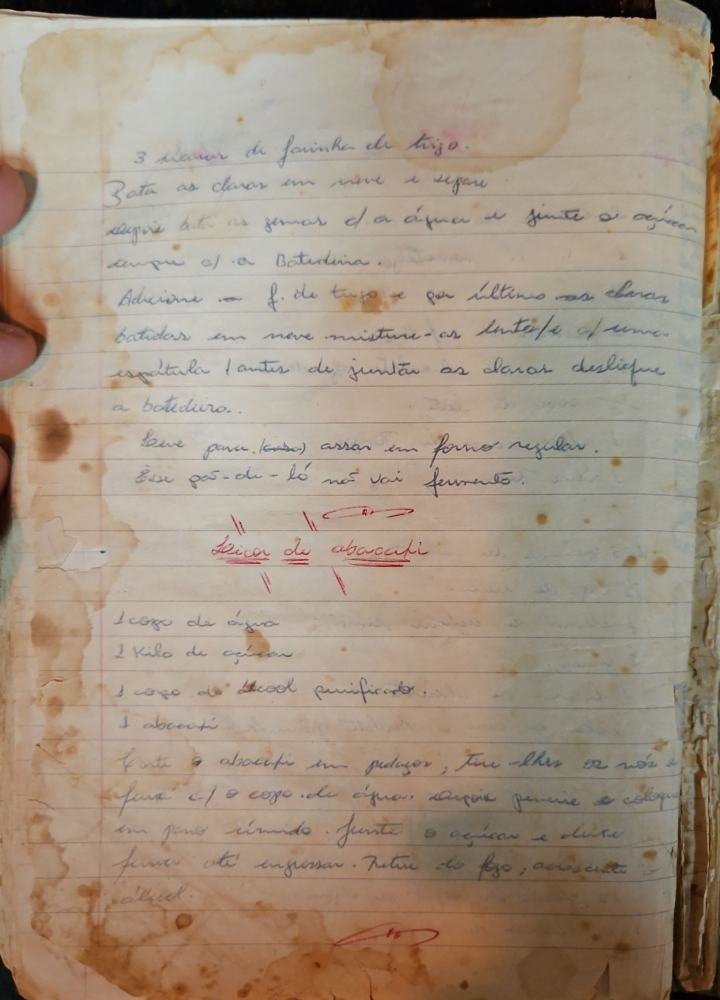 3 xícaras de farinha de trigo.
Bata as claras em neve e separe
depois bata as gemas c/ a água e junte o açúcar
sempre c/ a Batedeira.
Adicione a f. de trigo e por último as claras
batidas em neve misture-as lenta/e c/ uma
espátula (antes de juntar as claras desligue
a batedeira.
Leve para (casa) assar em forno regular.
Esse pão-de-ló não vai fermento.
Licor de abacaxi
1 copo de água
1 Kilo de açúcar
1 copo de álcool purificado.
1 abacaxi
Corte o abacaxi em pedaços, tire-lhes os nós e
ferva c/ o copo de água. depois peneire e coloque
em pano úmido. Junte o açúcar e deixe
ferver até engrossar. Retire do fogo, acrescente o
álcool.